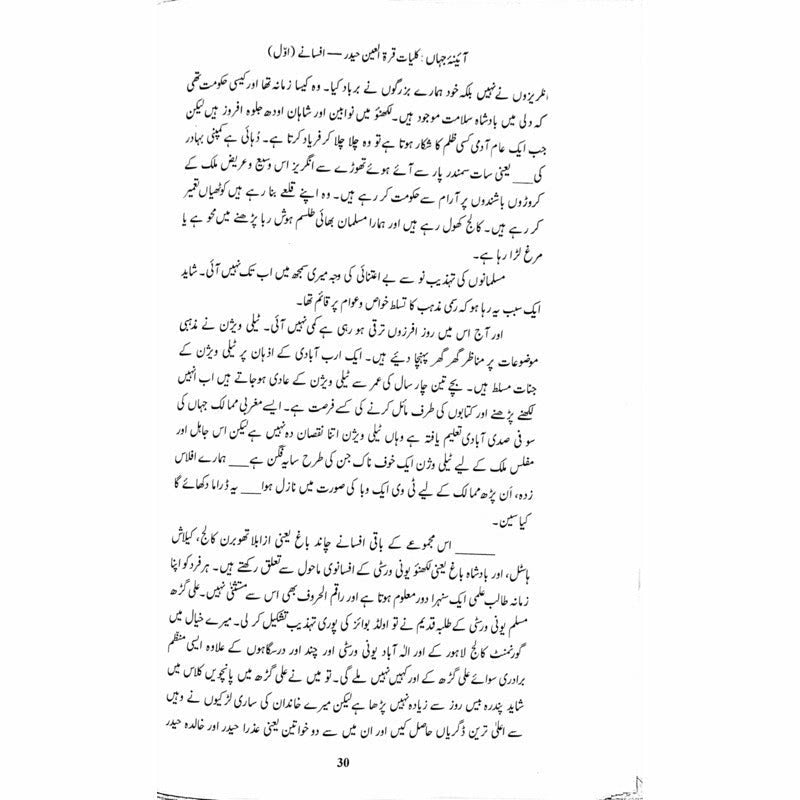 آئینۂ جہاں : کلیات قرۃ العین حیدر — افسانے (اوّل)
انگریزوں نے نہیں بلکہ خود ہمارے بزرگوں نے برباد کیا۔ وہ کیسا زمانہ تھا اور کیسی حکومت تھی
کہ دلی میں بادشاہ سلامت موجود ہیں۔ لکھنؤ میں نوابین اور شاہان اودھ جلوہ افروز ہیں لیکن
جب ایک عام آدمی کسی ظلم کا شکار ہوتا ہے تو وہ چلا چلا کر فریاد کرتا ہے۔ دُہائی ہے کمپنی بہادر
کی___ یعنی سات سمندر پار سے آئے ہوئے تھوڑے سے انگریز اس وسیع و عریض ملک کے
کروڑوں باشندوں پر آرام سے حکومت کر رہے ہیں۔ وہ اپنے قلعے بنا رہے ہیں کوٹھیاں تعمیر
کر رہے ہیں۔ کالج کھول رہے ہیں اور ہمارا مسلمان بھائی طلسم ہوش ربا پڑھنے میں محو ہے یا
مرغ لڑا رہا ہے۔
مسلمانوں کی تہذیب نو سے بے اعتنائی کی وجہ میری سمجھ میں اب تک نہیں آئی۔ شاید
ایک سبب یہ رہا ہو کہ رسمی مذہب کا تسلط خواص و عوام پر قائم تھا۔
اور آج اس میں روز افرزوں ترقی ہو رہی ہے کمی نہیں آئی۔ ٹیلی ویژن نے مذہبی
موضوعات پر مناظر گھر گھر پہنچا دیئے ہیں۔ ایک ارب آبادی کے اذہان پر ٹیلی ویژن کے
جنات مسلط ہیں۔ بچے تین چار سال کی عمر سے ٹیلی ویژن کے عادی ہو جاتے ہیں اب انہیں
لکھنے پڑھنے اور کتابوں کی طرف مائل کرنے کی کسے فرصت ہے۔ ایسے مغربی ممالک جہاں کی
سو فی صدی آبادی تعلیم یافتہ ہے وہاں ٹیلی ویژن اتنا نقصان دہ نہیں ہے لیکن اس جاہل اور
مفلس ملک کے لیے ٹیلی وژن ایک خوف ناک جن کی طرح سایہ فگن ہے___ ہمارے افلاس
زدہ، اَن پڑھ ممالک کے لیے ٹی وی ایک وبا کی صورت میں نازل ہوا___ یہ ڈراما دکھائے گا
کیا سین۔
_____ اس مجموعے کے باقی افسانے چاند باغ یعنی ازابلا تھوبرن کالج، کیلاش
ہاسٹل، اور بادشاہ باغ یعنی لکھنؤ یونی ورسٹی کے افسانوی ماحول سے تعلق رکھتے ہیں۔ ہر فرد کو اپنا
زمانہ طالب علمی ایک سنہرا دور معلوم ہوتا ہے اور راقم الحروف بھی اس سے مستثنٰی نہیں۔ علی گڑھ
مسلم یونی ورسٹی کے طلبہ قدیم نے تو اولڈ بوائز کی پوری تہذیب تشکیل کر لی۔ میرے خیال میں
گورنمنٹ کالج لاہور کے اور الٰہ آباد یونی ورسٹی اور چند اور درسگاہوں کے علاوہ ایسی منظم
برادری سوائے علی گڑھ کے اور کہیں نہیں ملے گی۔ تو میں نے علی گڑھ میں پانچویں کلاس میں
شاید پندرہ بیس روز سے زیادہ نہیں پڑھا ہے لیکن میرے خاندان کی ساری لڑکیوں نے وہیں
سے اعلیٰ ترین ڈگریاں حاصل کیں اور ان میں سے دو خواتین یعنی عذرا حیدر اور خالدہ حیدر
30